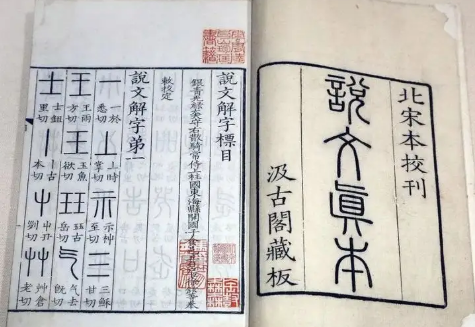 北宋本校刊
說文眞本
汲古閣藏板
說文解字標目
銀青光祿大夫守右散騎常侍上柱國東海縣開國子食邑五百戶臣徐鉉等奉
敕校定
說文解字弟一
一 一於悉切 丄 上時掌切 示 示神至切 三 三穌甘切
王 王雨方切 玉 玉魚欲切 玨 玨古岳切 气 气去旣切
士 士鉏里切 丨 丨古本切 屮 屮丑切 艸 艸倉老切